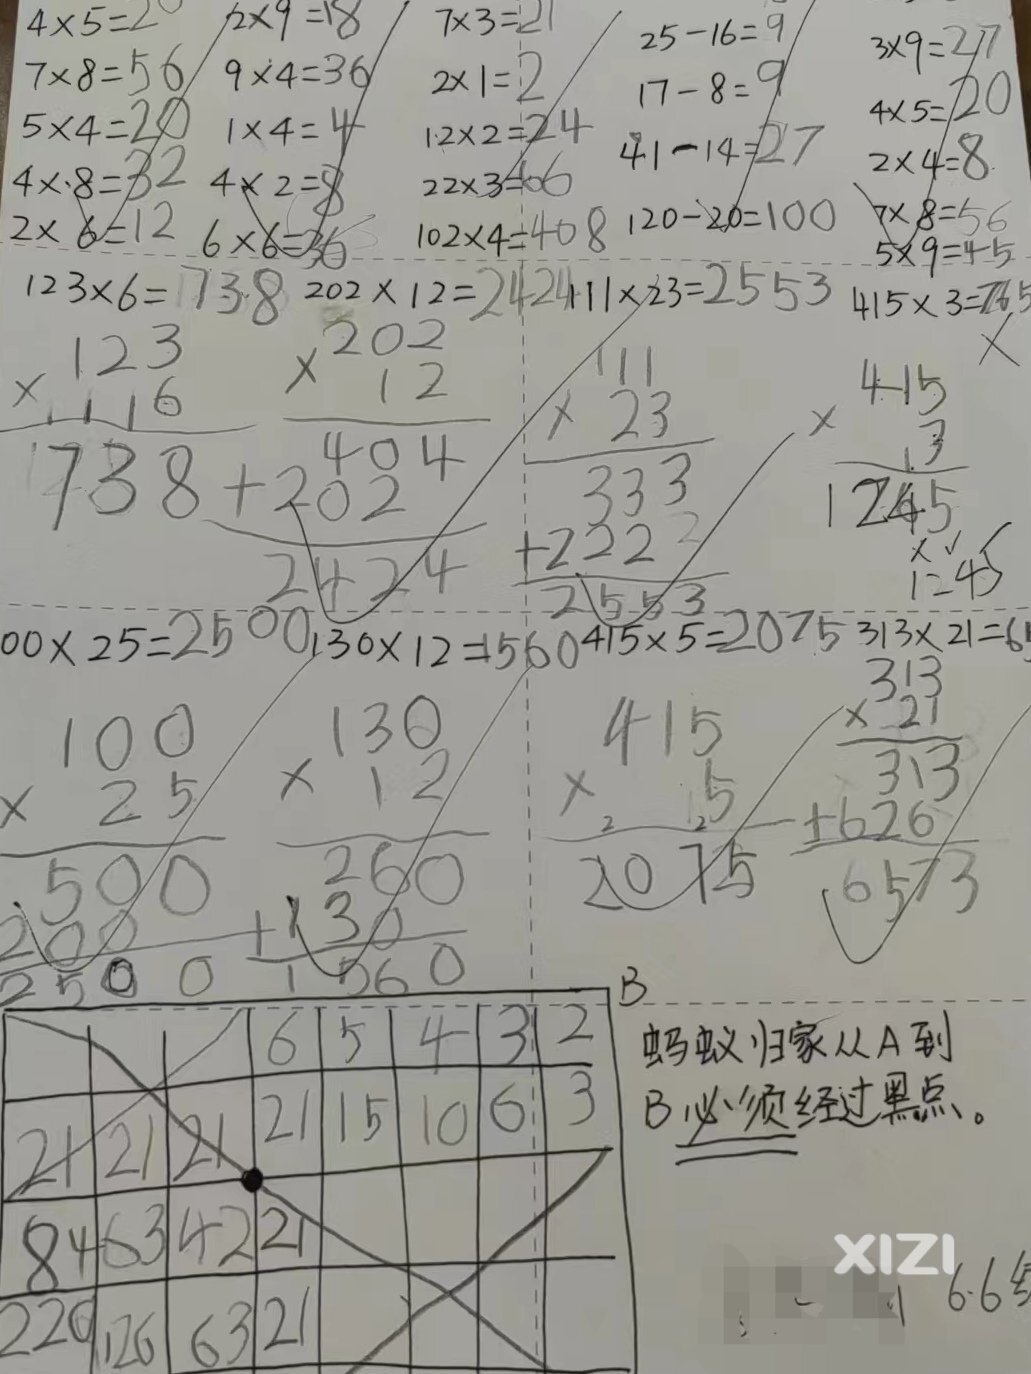 4×5=20 2×9=18 7×3=21
25-16=9
7×8=56 9×4=36 2×1=2 17-8=9 3×9=27
5×4=20 1×4=4 12×2=24 41-14=27 4×5=20
4×8=32 4×2=8 22×3=66 120-20=100 2×4=8
2×6=12 6×6=36 102×4=408 7×8=56
5×9=45
123×6=738 202×12=2424 111×23=2553 415×3=
123
×6
738
202
×12
404
+202
2424
111
×23
333
+222
2553
415
×3
1245
1245
00×25=2500 130×12=1560 415×5=2075 313×21=65
100
×25
500
200
2500
130
×12
260
+130
1560
415
×5
2 2
2075
313
×21
313
+626
6573
B
6 5 4 3 2
21 21 21 21 15 10 6 3
84 63 42 21
126 63 21
蚂蚁归家从A到
B必须经过黑点。
XIZI